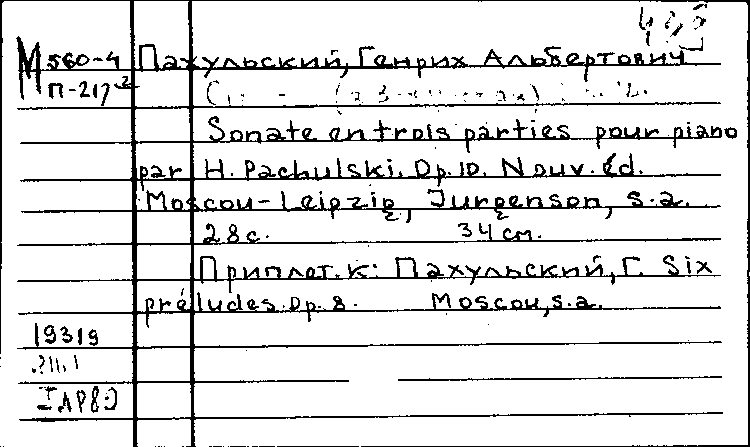 М 560-4 Пахульский, Генрих Альбертович
П-217²
Sonate en trois parties pour piano
par H. Pachulski. Op. 10. Nouv. éd.
Moscou-Leipzig, Jurgenson, s.a.
28 с. 34 см.
Приплет. к: Пахульский, Г. Six
préludes. Op. 8. Moscou, s.a.
19319